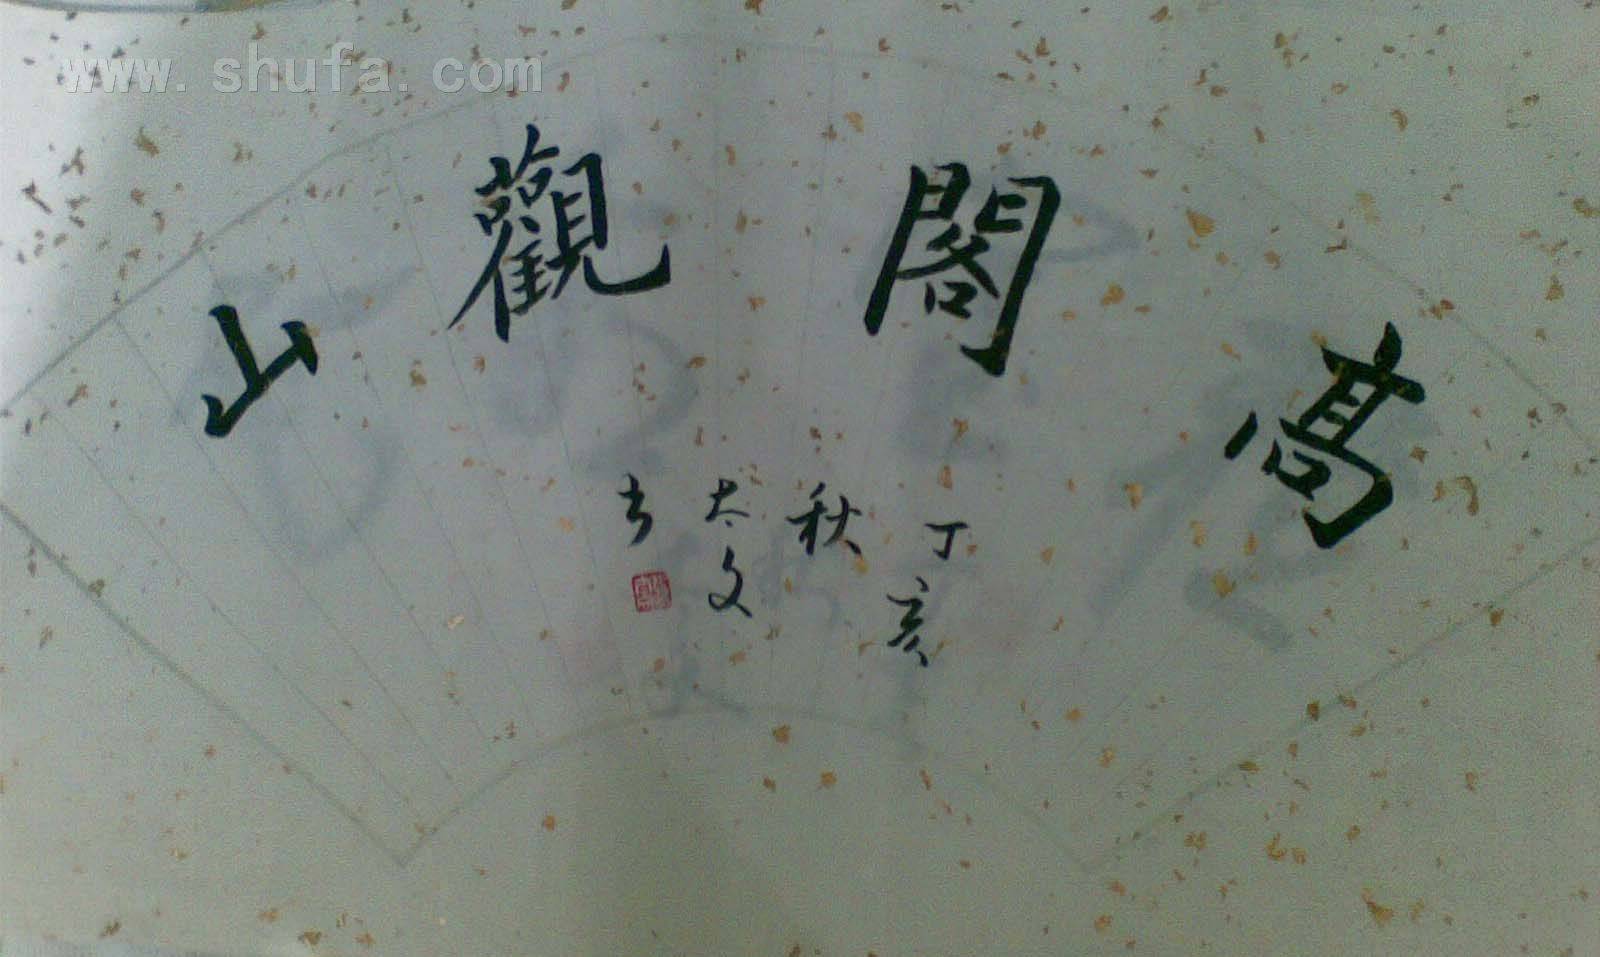 www.shufa.com
髙閣觀山
丁亥
秋
太文
书